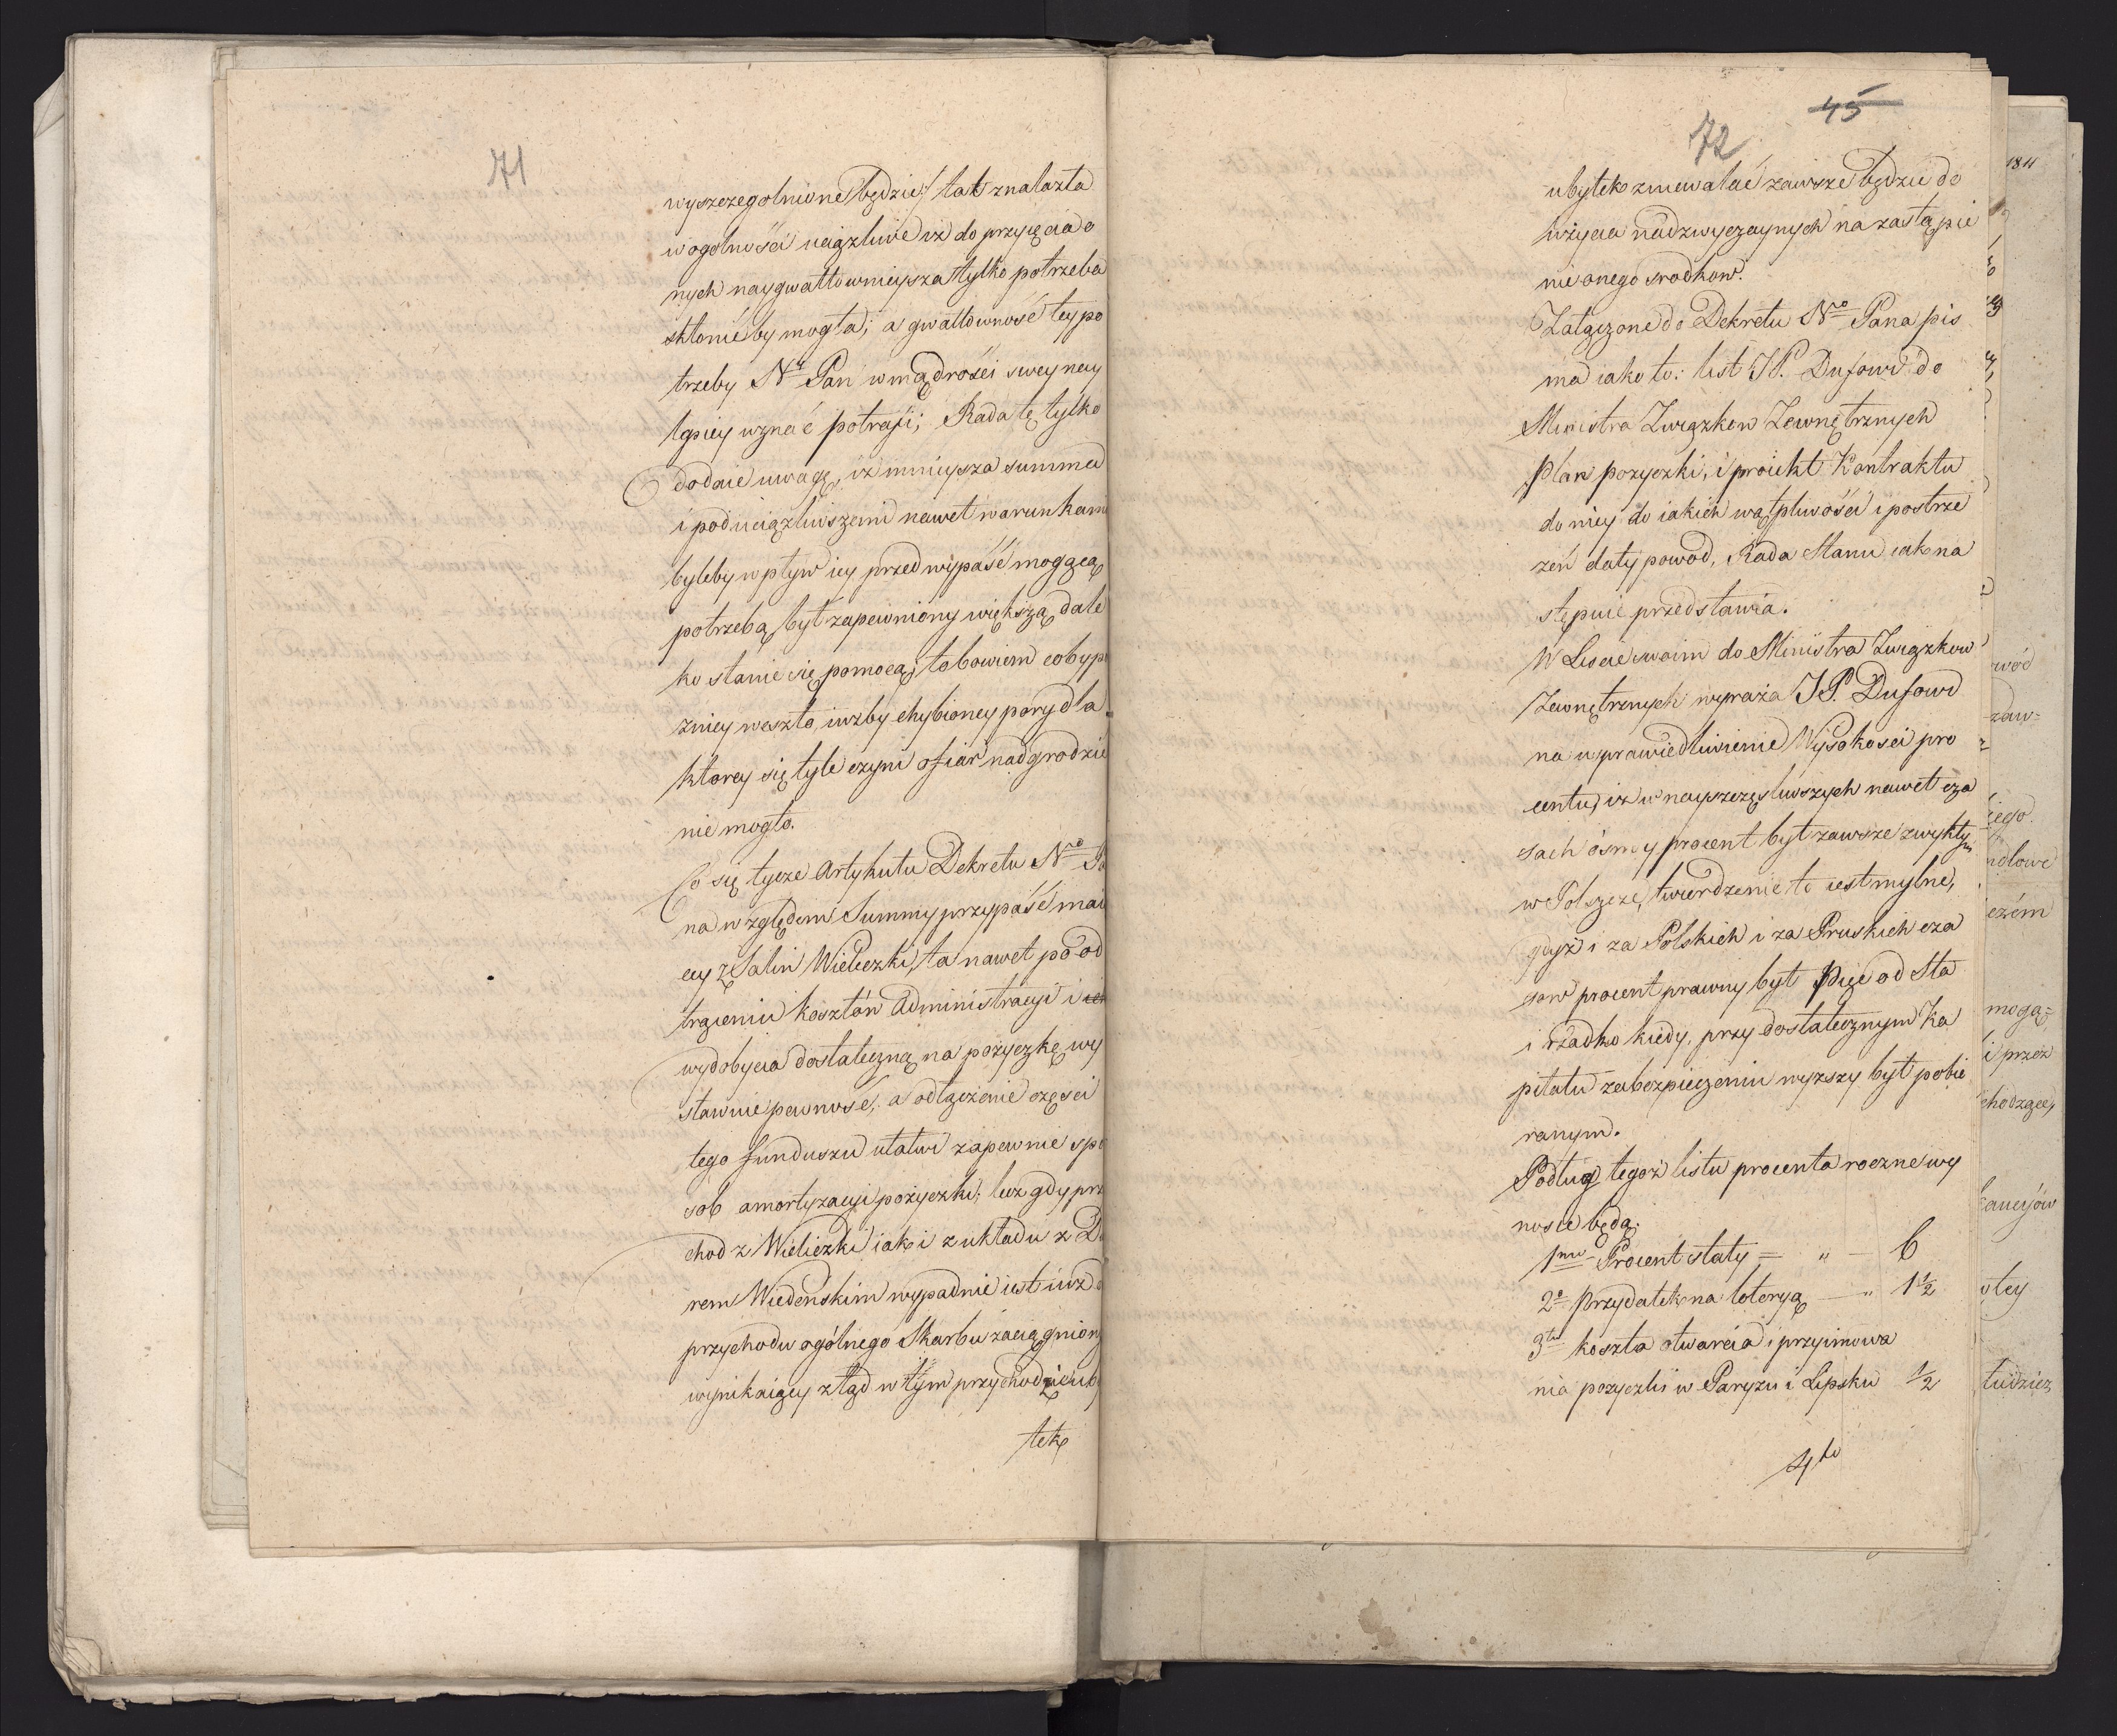 71
wyszczegolnione będzie/ tak znalazła
w ogolnośći uciążliwe iż do przyięcia o
nych naygwałtownieysza tylko potrzeba
skłonić by mogła; a gwałtowność tey po
trzeby Nay Pan w mądrośći swey nay
lepiey uznać potrafi; Rada tę tylko
dodaie uwagę, iż mnieysza summa
i pod uciążliwszemi nawet warunkami
byleby wpływ iey przed wypaść mogącą
potrzebą był zapewniony większą dale
ko stanie się pomocą; to bowiem coby po
zniey weszło, iużby chybioney pory dla
ktorey się tyle czyni ofiar nadgrodzić
nie mogło.
Co się tycze Artykułu Dekretu Ngo Pa
na względem Summy przypaść maią
cey z Salin Wieliczki, ta nawet po od
trąceniu kosztów Administracyi i
wydobycia dostateczną na pożyczkę wy
stawuie pewność, a odłączenie częśći
tego funduszu ułatwi zapewnie spo
sób amortyzacyi pożyczki; lecz gdy przy
chod z Wieliczki iak i z układu z Dwo
rem Wiedenskim wypadnie iest iuż do
przychodu ogólnego Skarbu zaciągniony
wynikaiący ztąd w tym przychodzie uby
tek
45
72
ubytek zniewalać zawsze będzie do
użycia nadzwyczaynych na zastąpie
nie onego srodkow.
Załączone do Dekretu Ngo Pana pis
ma iako to: list JP. Dufour do
Ministra Związkow Zewnętrznych
Plan pożyczki, i proiekt Kontraktu
do niey do iakich wątpliwości i postrze
żeń dały powod, Rada Stanu iak na
stępuie przedstawia.
W Liscie swoim do Ministra Związkow
Zewnętrznych wyraża JP. Dufour
na uprawiedliwienie Wysokosci pro
centu, iż w nayszczęśliwszych nawet cza
sach ósmy procent był zawsze zwykłym
w Polszcze, twierdzenie to iest mylne,
gdyż i za Polskich i za Pruskich cza
sow procent prawny był Pięc od Sta
i rzadko kiedy, przy dostatecznym Ka
pitału zabezpieczeniu wyższy był pobie
ranym.
Podług tegoż listu procenta roczne wy
nosic będą.
1mo Procent stały = " — 6
2o Przydatek na loteryą — " 1½
3tio koszta otwarcia i przyimowa
nia pożyczki w Paryżu i Lipsku ½
4to
1811
wód
zaw=
iego.
ndlowe
czém
mogą=
i przez
chodzące,
kaucyów
otey
tudzież